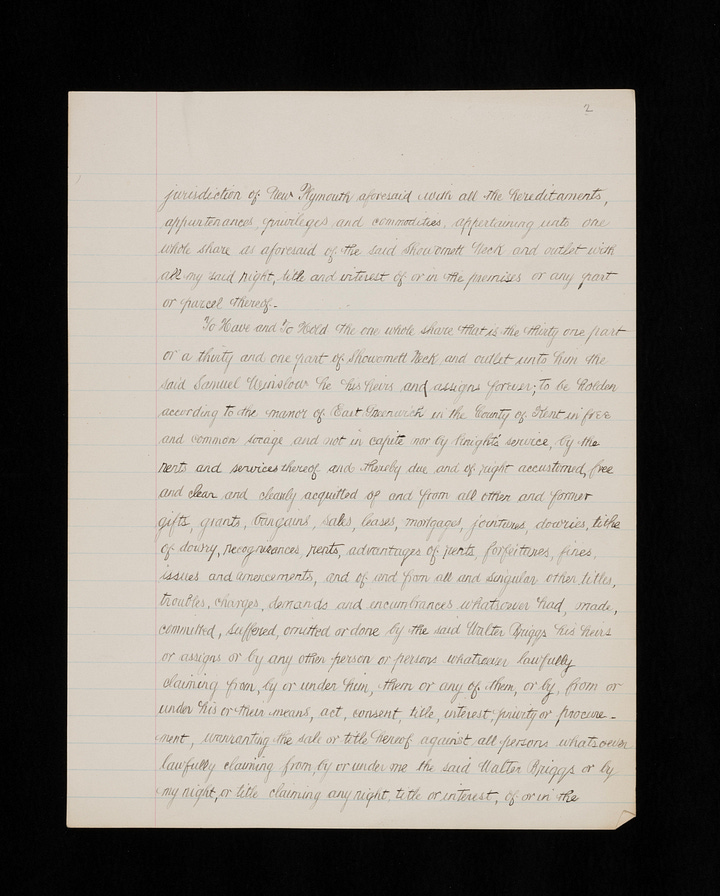 2
jurisdiction of New Plymouth aforesaid with all the hereditaments,
appurtenances, privileges and commodities, appertaining unto one
whole share as aforesaid of the said Showomett Neck and outlet with
all my said right, title and interest of or in the premises or any part
or parcel thereof.
To Have and To Hold the one whole share that is the thirty one part
or a thirty and one part of Showomett Neck and outlet unto him the
said Samuel Winslow he his heirs and assigns forever; to be holden
according to the manor of East Greenwich in the County of Kent in free
and common socage and not in capite nor by Knight's service, by the
rents and services thereof and thereby due and of right accustomed, free
and clear and cleanly acquitted of and from all other and former
gifts, grants, bargains, sales, leases, mortgages, jointures, dowries, title
of dowry, recognisances, rents, advantages of rents, forfeitures, fines,
issues and amercements, and of and from all and singular other titles,
troubles, charges, demands and incumbrances whatsoever had, made,
committed, suffered, omitted or done by the said Walter Briggs his heirs
or assigns or by any other person or persons whatsoever lawfully
claiming from, by or under him, them or any of them, or by, from or
under his or their means, act, consent, title, interest, privity or procure-
ment, warranting the sale or title hereof against all persons whatsoever
lawfully claiming from, by or under me the said Walter Briggs or by
my right, or title claiming any right, title or interest, of or in the